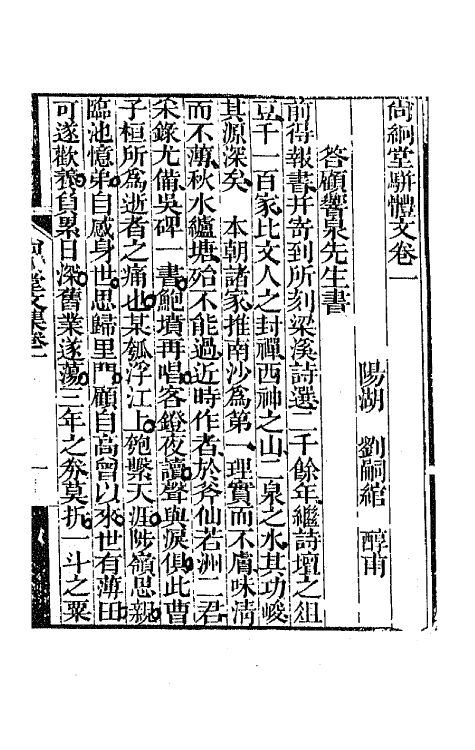 尚絅堂駢體文卷一
陽湖　劉嗣綰　醇甫
答顧響泉先生書
前得報書并寄到所刻梁溪詩選二千餘年繼詩壇之俎
豆千一百家比文人之封禪西神之山二泉之水其功峻
其源深矣　本朝諸家推南沙爲第一理實而不膚味清
而不薄秋水鑪塘殆不能過近時作者於斧仙若洲二君
采錄尤備吳碑一書鮑墳再唱客鐙夜讀聲與淚俱此曹
子桓所爲逝者之痛也某瓠浮江上匏繫天涯陟嶺思親
臨池憶弟自感身世思歸里門顧自高曾以來世有薄田
可遂歡養負累日深舊業遂蕩三年之券莫折一斗之粟
堂文集卷一
一